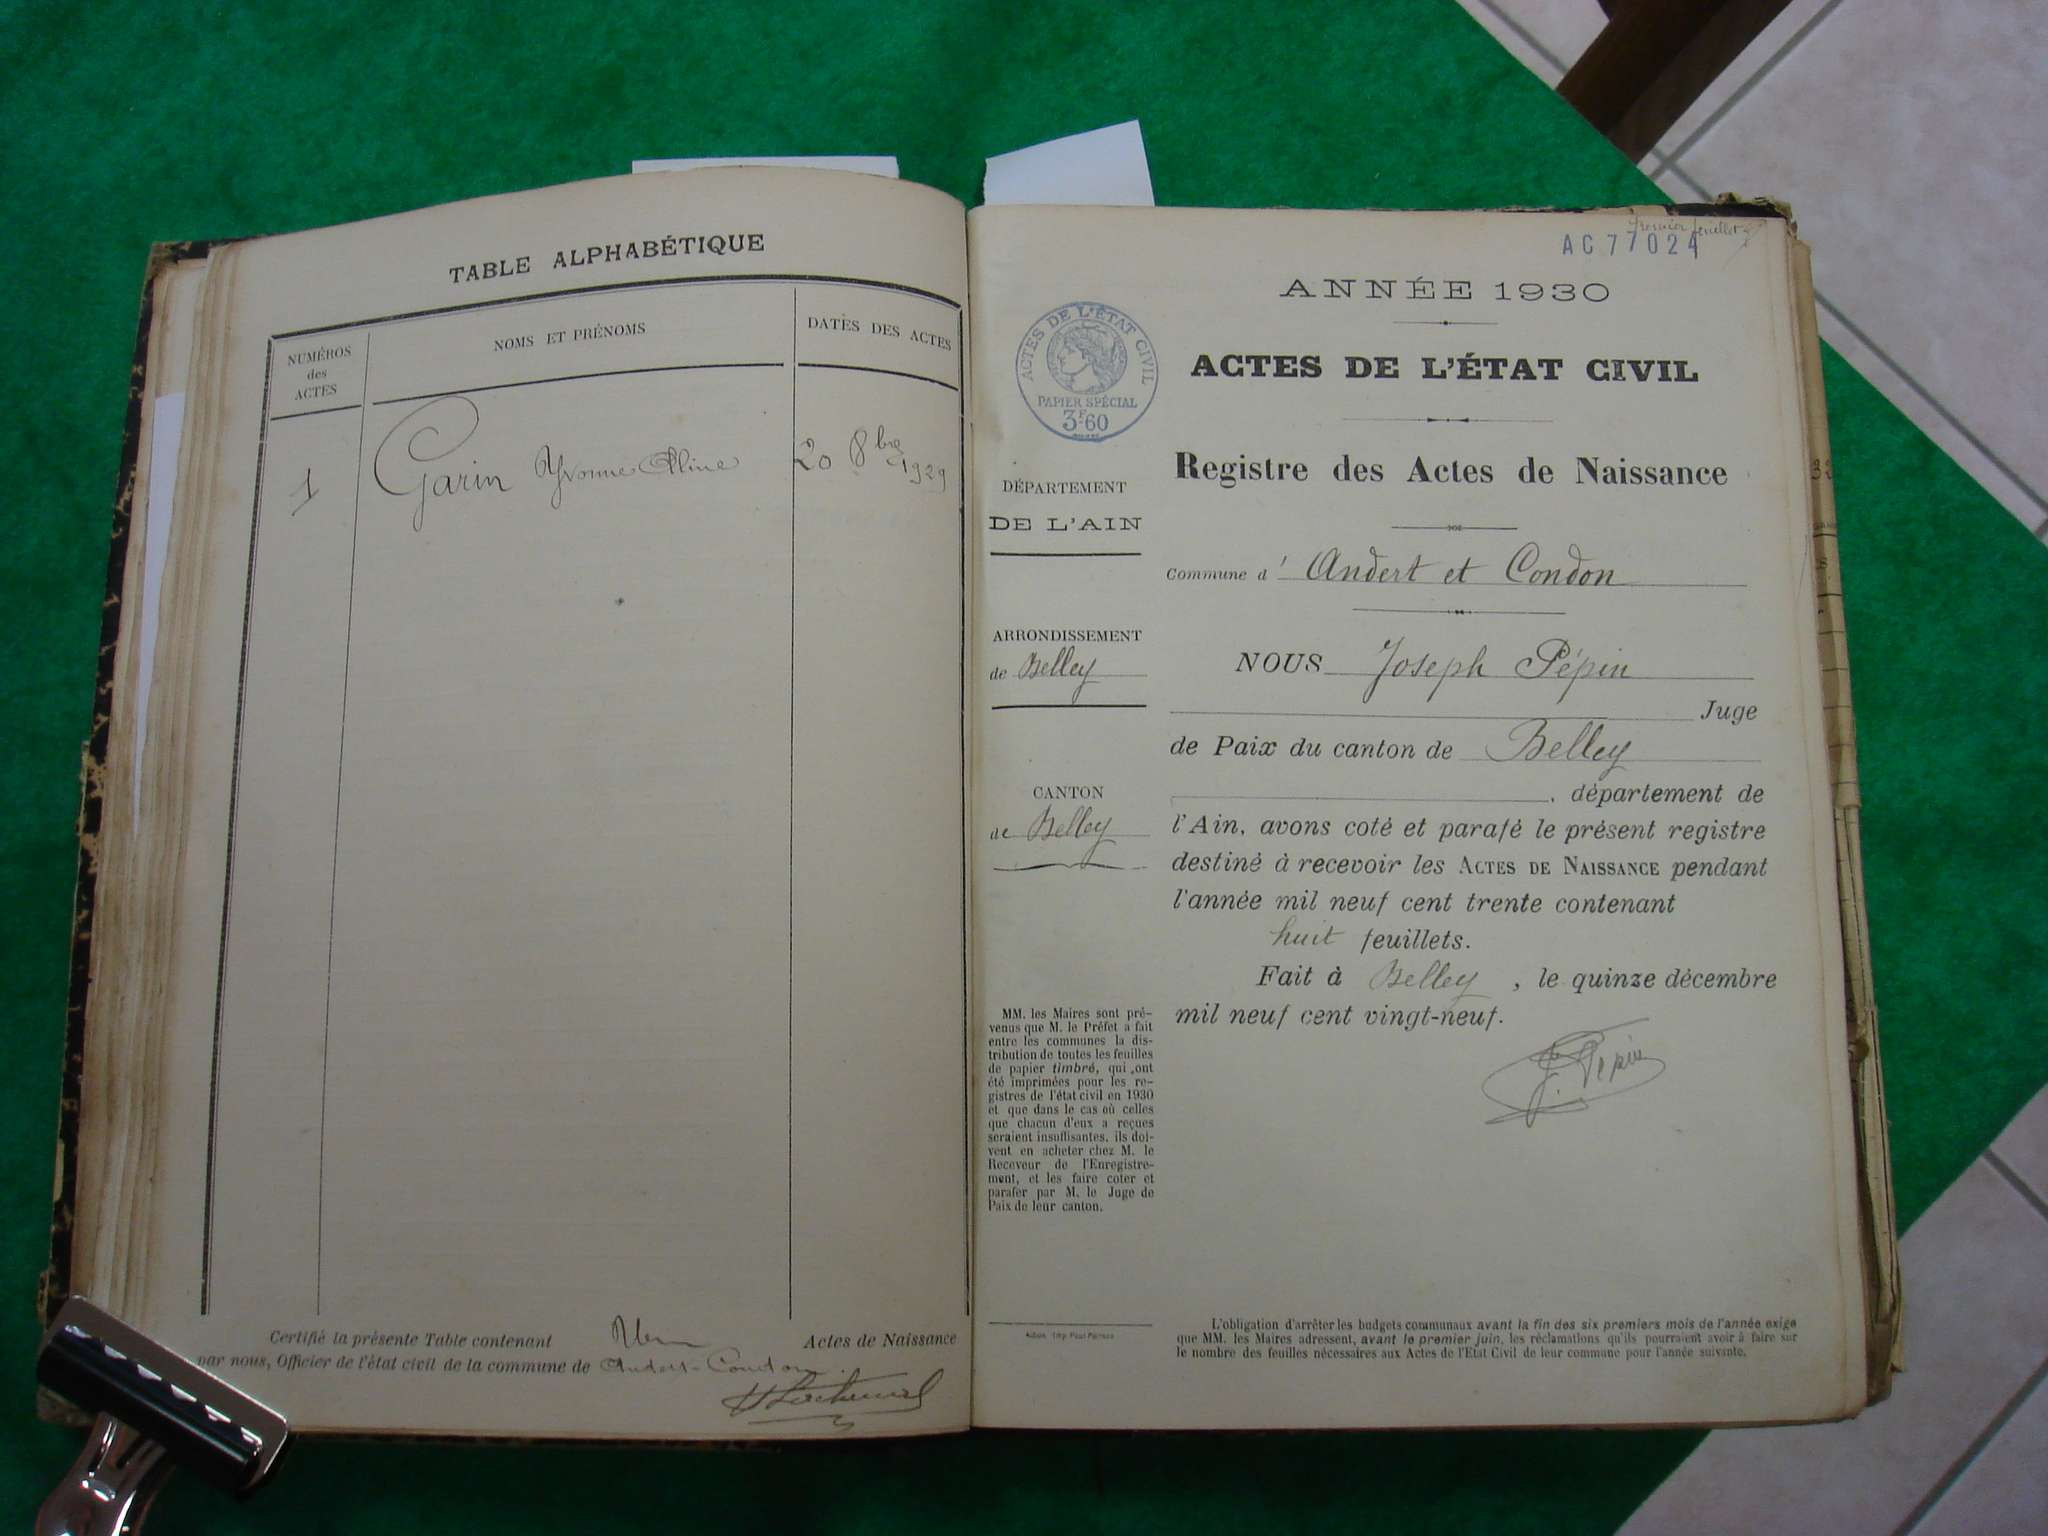 TABLE ALPHABÉTIQUE
NUMÉROS
des
ACTES
NOMS ET PRÉNOMS
DATES DES ACTES
1
Garin Yvonne Aline
20 8bre 1929
Certifié la présente Table contenant
Actes de Naissance
par nous, Officier de l'état civil de la commune de Andert-Condon
Premier feuillet
AC 77024
ANNÉE 1930
ACTES DE L'ÉTAT CIVIL
PAPIER SPÉCIAL
3F60
ACTES DE L'ÉTAT CIVIL
Registre des Actes de Naissance
DÉPARTEMENT
DE L'AIN
Commune d' Andert et Condon
ARRONDISSEMENT
de Belley
CANTON
de Belley
NOUS Joseph Pépin
Juge
de Paix du canton de Belley
, département de
l'Ain, avons coté et parafé le présent registre
destiné à recevoir les ACTES DE NAISSANCE pendant
l'année mil neuf cent trente contenant
huit feuillets.
Fait à Belley, le quinze décembre
mil neuf cent vingt-neuf.
J. Pépin
MM. les Maires sont pré-
venus que M. le Préfet a fait
entre les communes la dis-
tribution de toutes les feuilles
de papier timbré, qui ont
été imprimées pour les re-
gistres de l'état civil en 1930
et que dans le cas où celles
que chacun d'eux a reçues
seraient insuffisantes, ils doi-
vent en acheter chez M. le
Receveur de l'Enregistre-
ment, et les faire coter et
parafer par M. le Juge de
Paix de leur canton.
L'obligation d'arrêter les budgets communaux avant la fin des six premiers mois de l'année exige
que MM. les Maires adressent, avant le premier juin, les réclamations qu'ils pourraient avoir à faire sur
le nombre des feuilles nécessaires aux Actes de l'Etat Civil de leur commune pour l'année suivante.